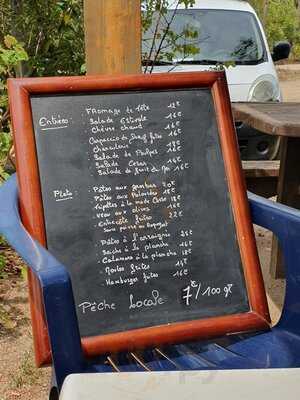 Entrées : Fromage de tête 12€
Salade Estivale 16€
Chèvre chaud 16€
Carpaccio de Bœuf frites
Charcuterie 16€
Salade de Poulpes
Salade Cesar 16€
Salade de fruit de Mer 18€
Plat : Pâtes aux gambas 20€
Pâtes aux Palourdes 18€
Tripettes à la mode Corse 18€
Veau aux olives 18€
Entrecôte frites 22€
Sauce poivre ou Roquefort
Pâtes à l'araignée 25€
à la planche 18€
Calamars à la planche 18€
Moules frites 15€
Hamburger frites 16€
Pêche Locale 7€/100gr